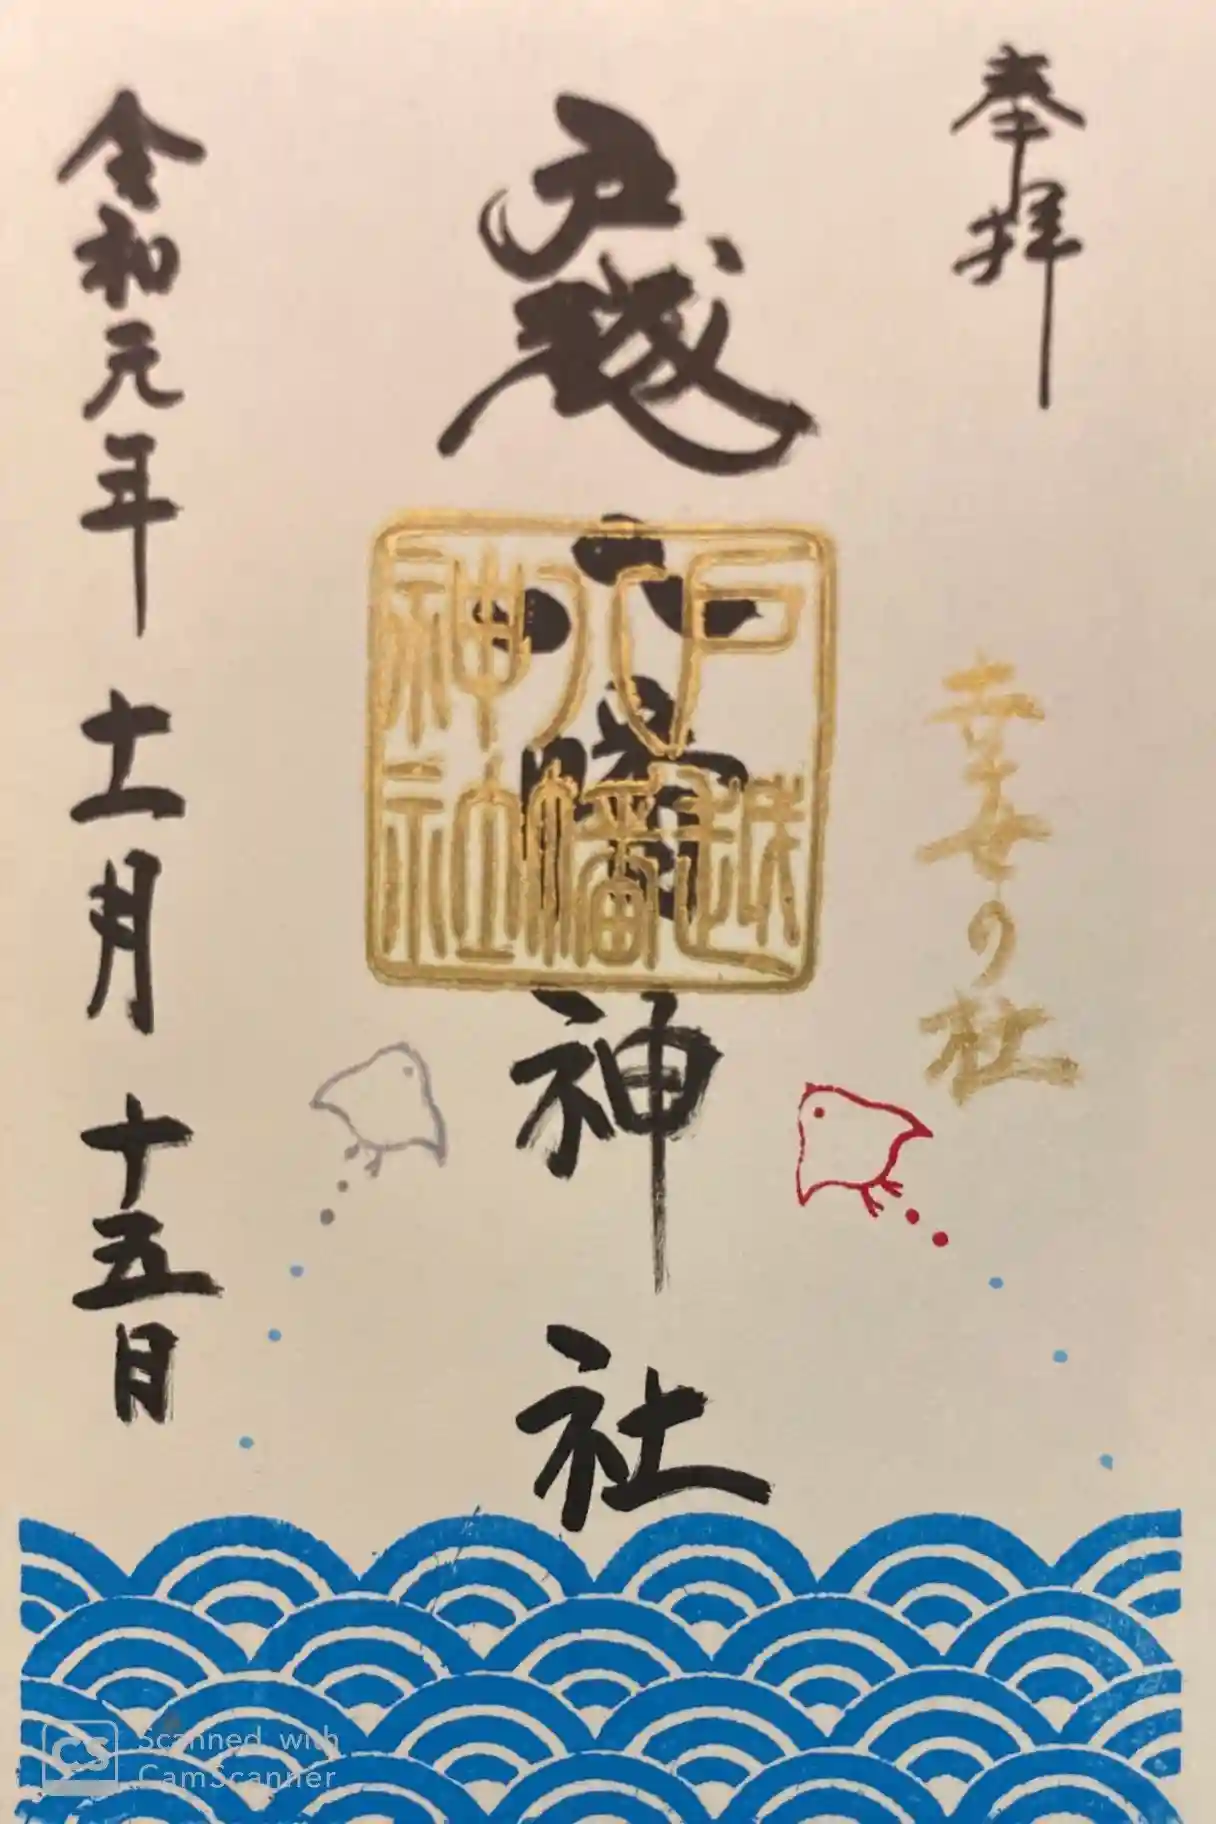 奉拝
幸せの社
戸越八幡神社
戸越
八幡
神社
令和元年十一月十五日
Scanned with
CamScanner